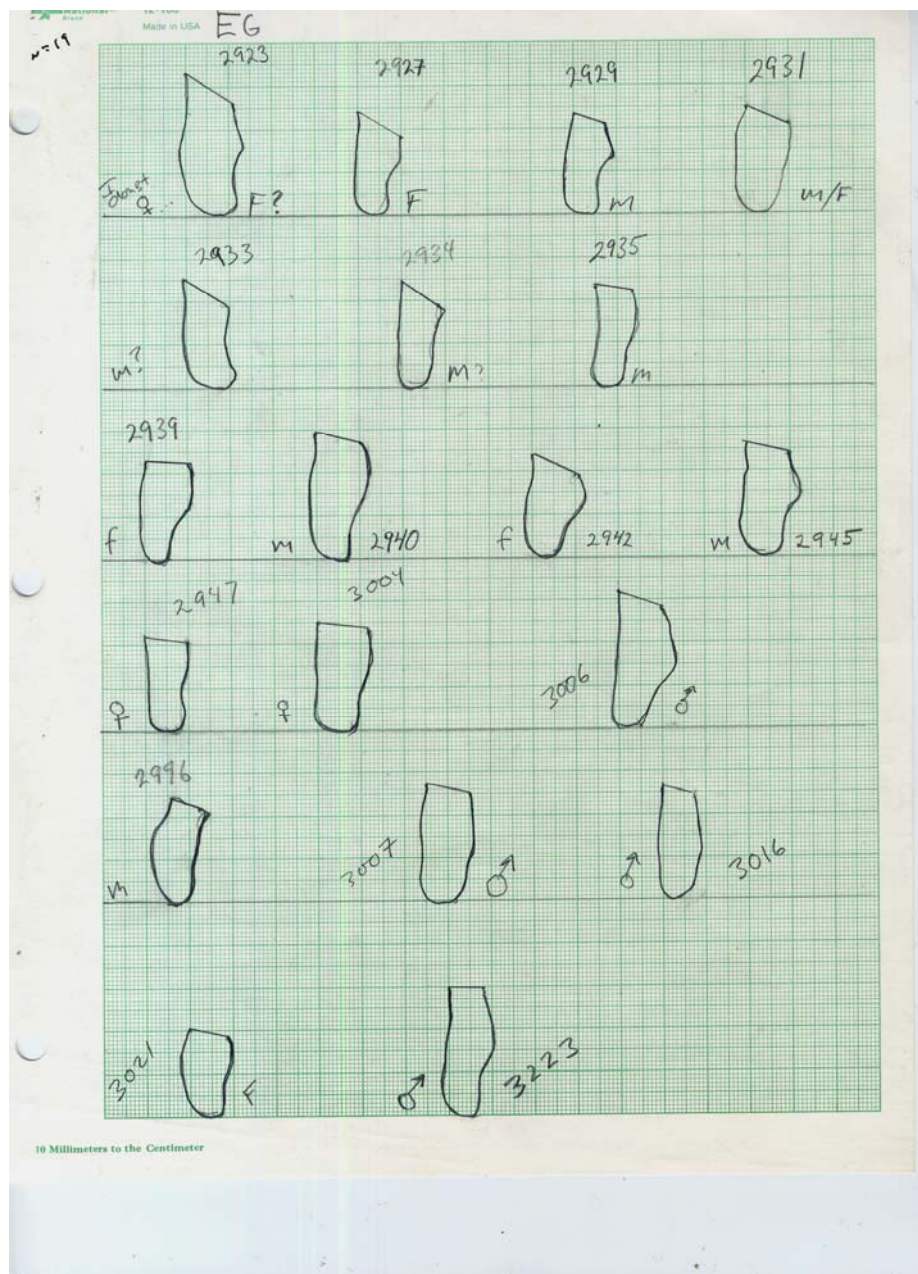 National
Brand
12-188
Made in USA
EG
n=19
2923 2927 2929 2931
I
♀ F? F m m/F
2933 2934 2935
m? m? m
2939
f m 2940 f 2942 m 2945
2947 3004
♀ ♀ 3006 ♂
2996
m 3007 ♂ ♂ 3016
3021 F ♂ 3223
10 Millimeters to the Centimeter